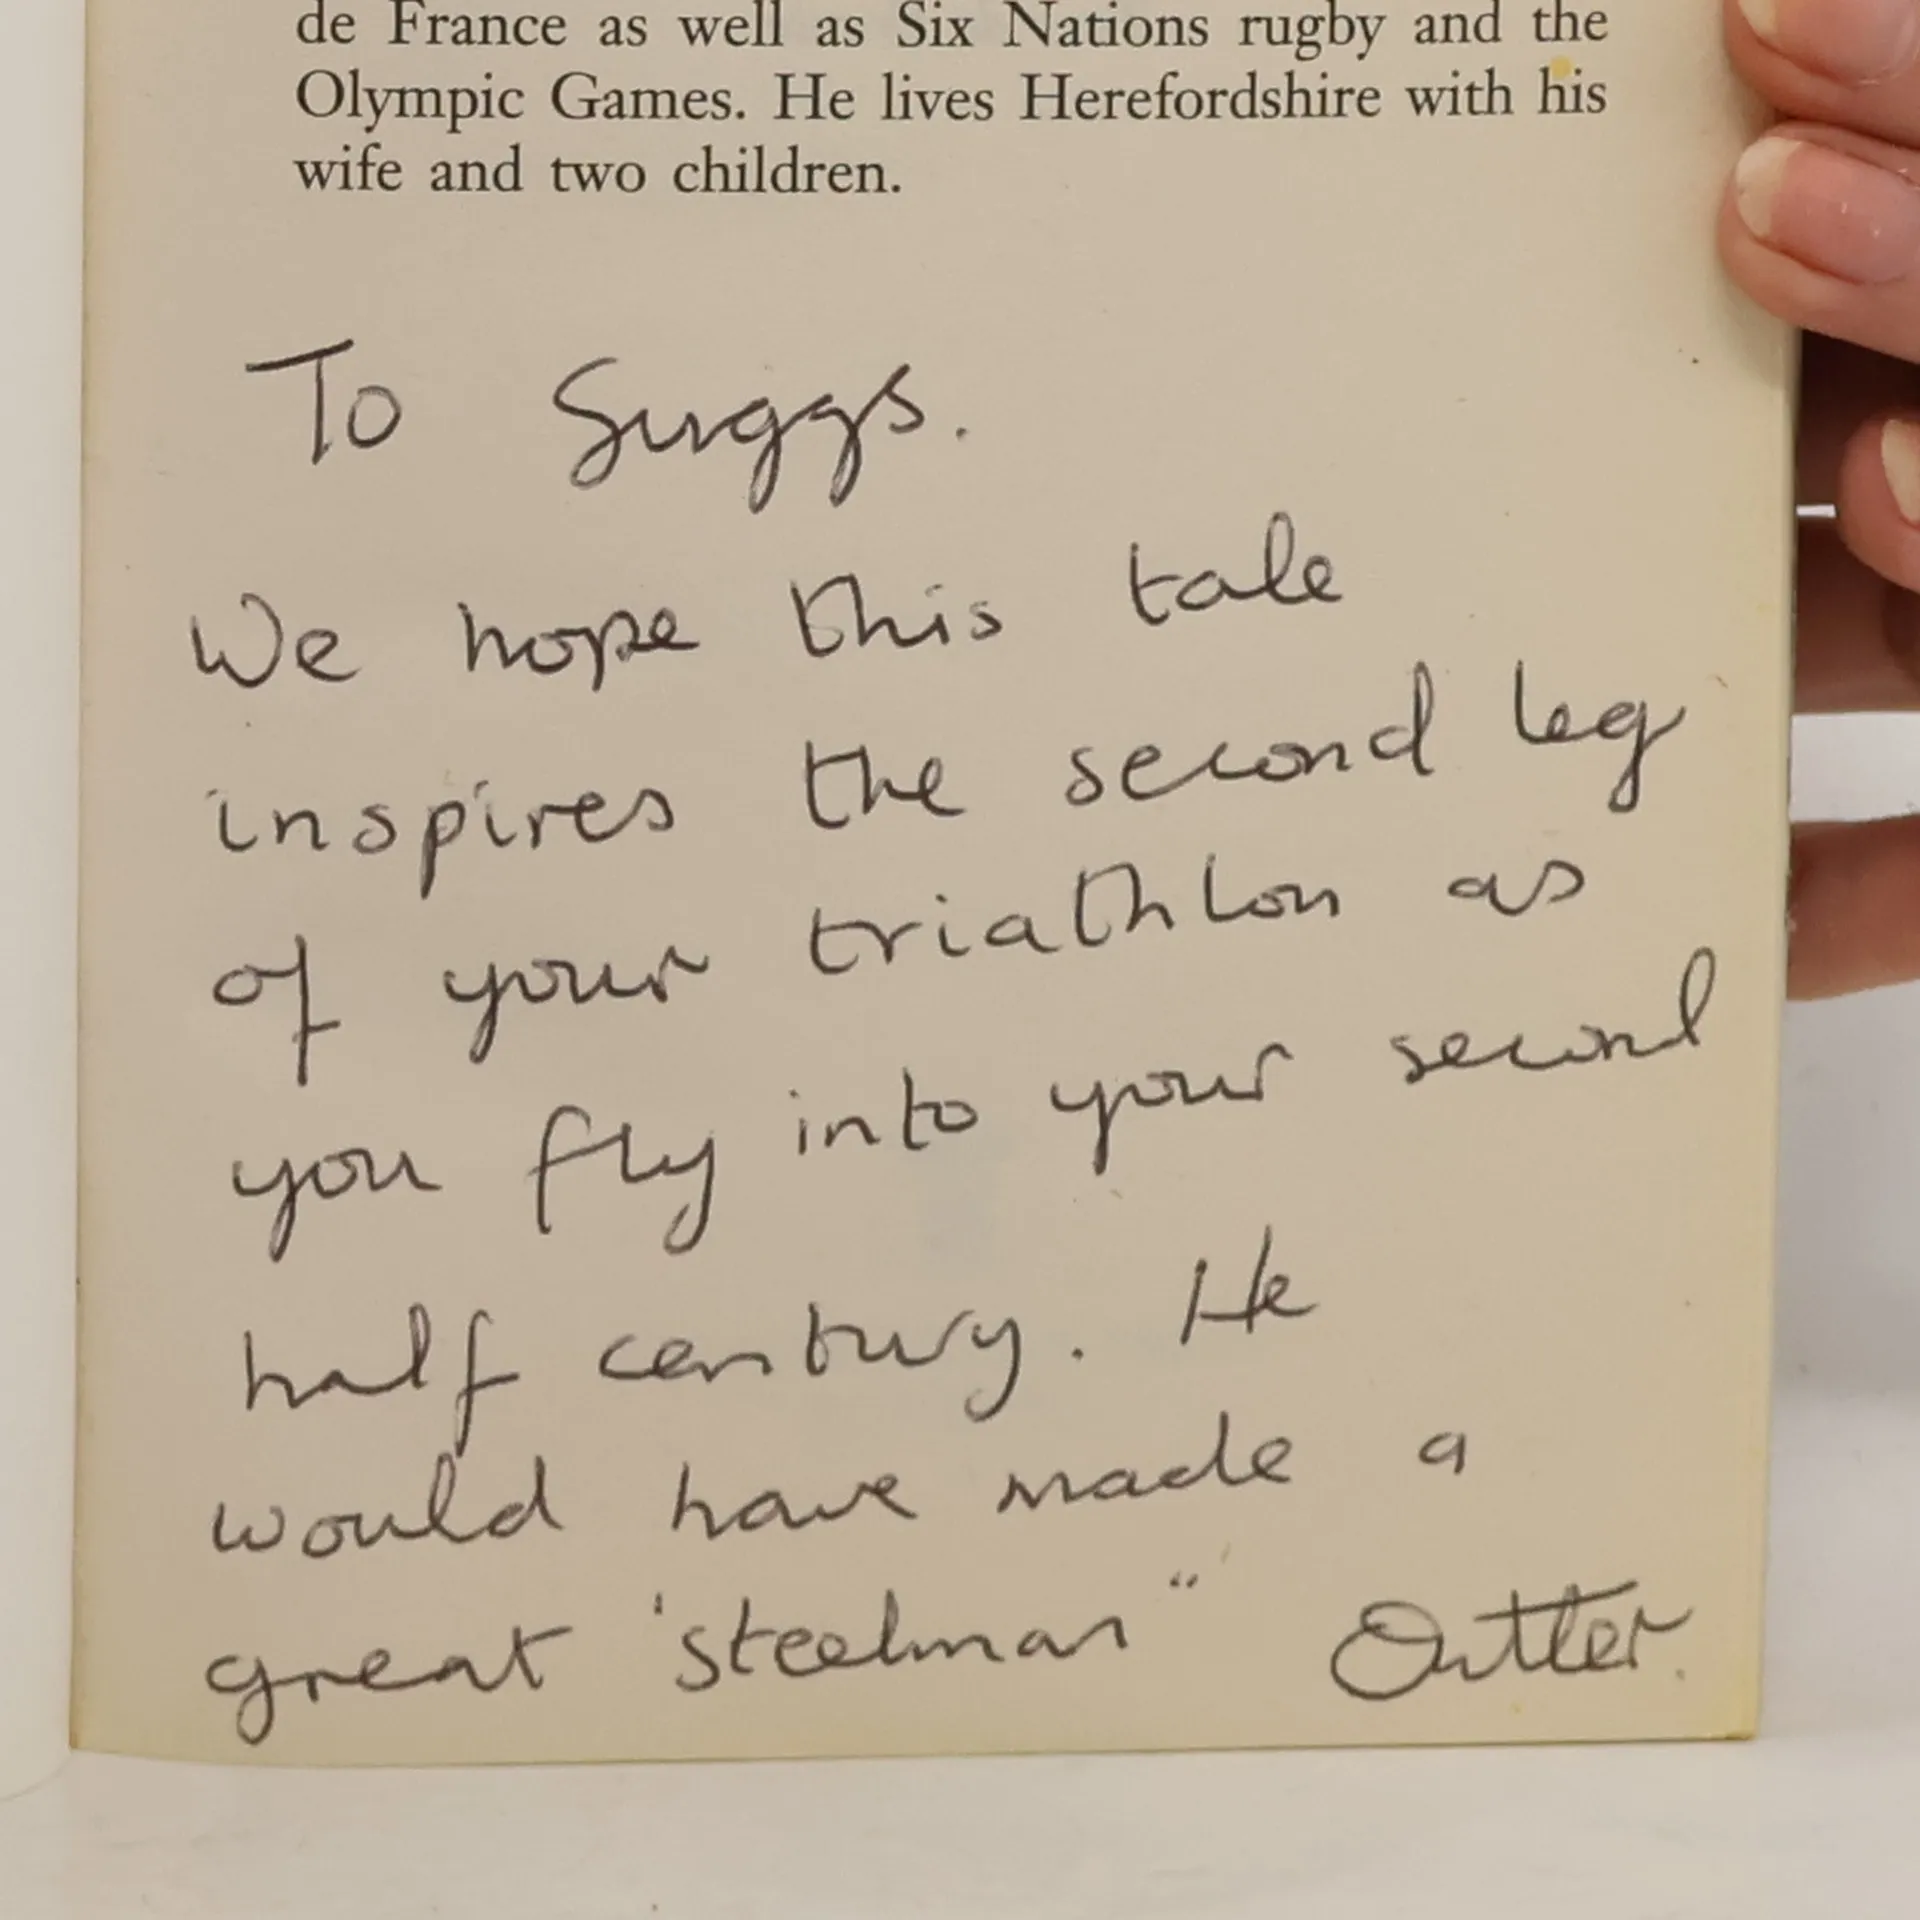 de France as well as Six Nations rugby and the
Olympic Games. He lives Herefordshire with his
wife and two children.
To Suggs.
We hope this tale
inspires the second leg
of your triathlon as
you fly into your second
half century. He
would have made a
great 'steelman"